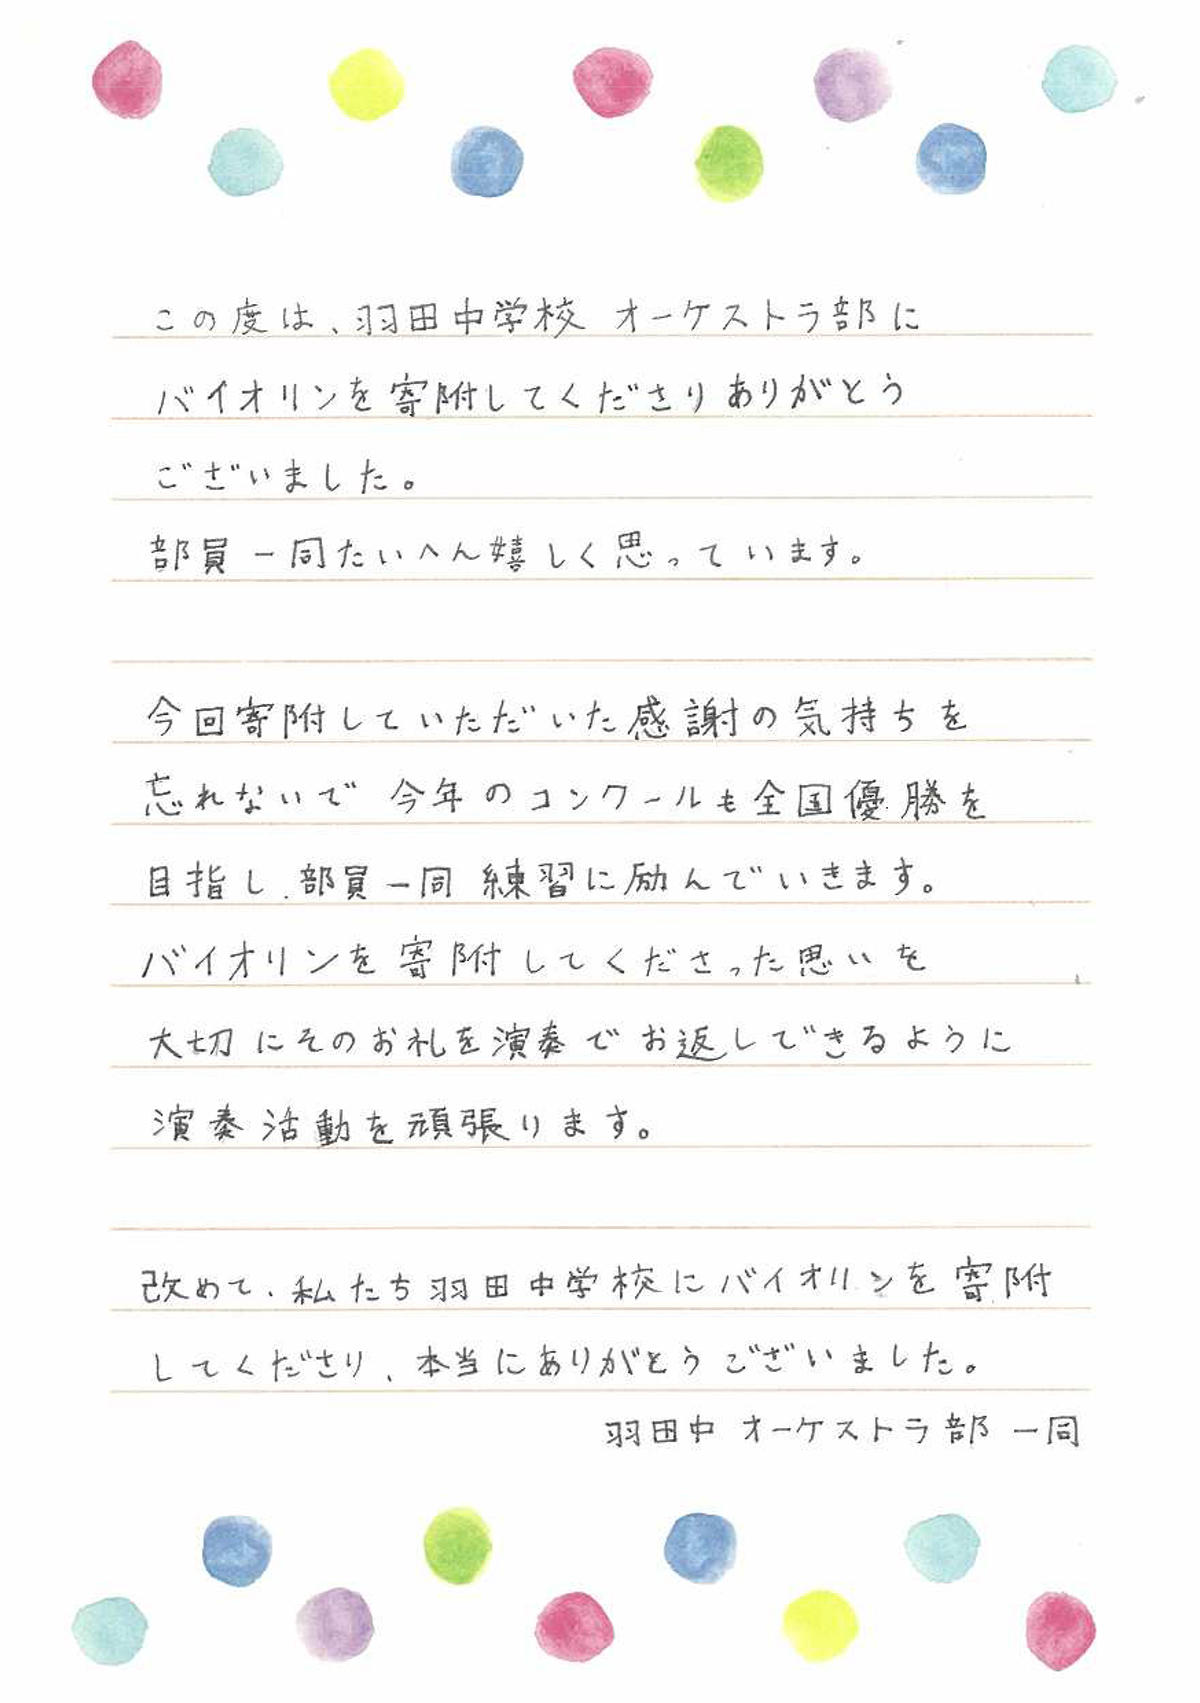 この度は、羽田中学校 オーケストラ部に
バイオリンを寄附してくださりありがとう
ございました。
部員一同たいへん嬉しく思っています。
今回寄附していただいた感謝の気持ちを
忘れないで 今年のコンクールも全国優勝を
目指し、部員一同 練習に励んでいきます。
バイオリンを寄附してくださった思いを
大切にそのお礼を演奏でお返しできるように
演奏活動を頑張ります。
改めて、私たち羽田中学校にバイオリンを寄附
してくださり、本当にありがとうございました。
羽田中 オーケストラ部 一同